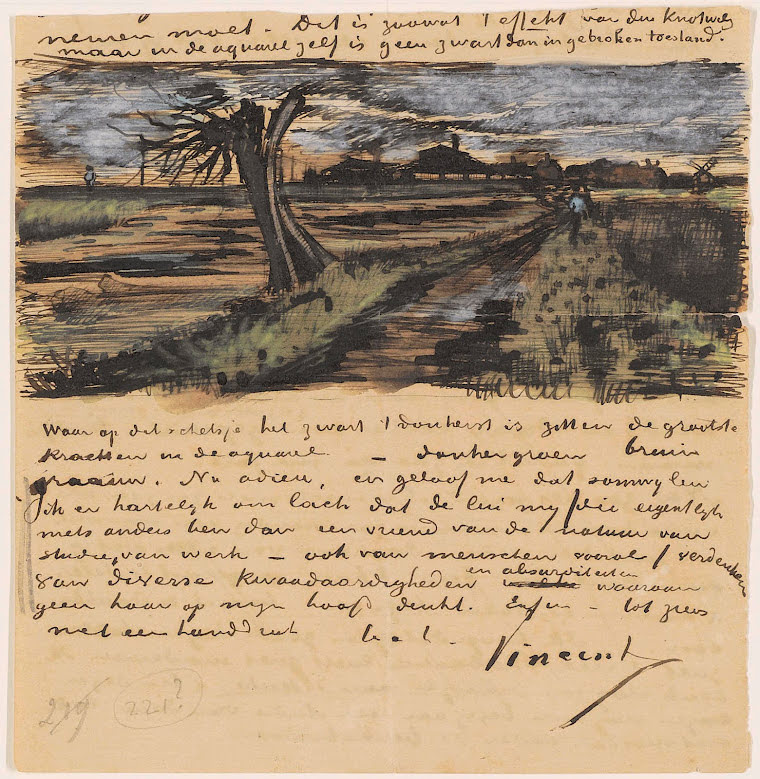 nemen moet. Dit is zoowat 't effekt van den Knotwilg
maar in de aquarel zelf is geen zwart dan in gebroken toestand.
Waar op dit schetsje het zwart 't donkerst is zitten de grootste
krachten in de aquarel – donkergroen bruin
graauw. Nu adieu, en geloof me dat somwylen
ik er hartelyk om lach dat de lui my /die eigentlyk
niets anders ben dan een vriend van de natuur van
studie, van werk – ook van menschen vooral/ verdenken
van diverse kwaadaardigheden en absurditeiten waaraan
geen haar op myn hoofd denkt. Enfin – tot ziens
met een handdruk t. à t.
Vincent
219 221?